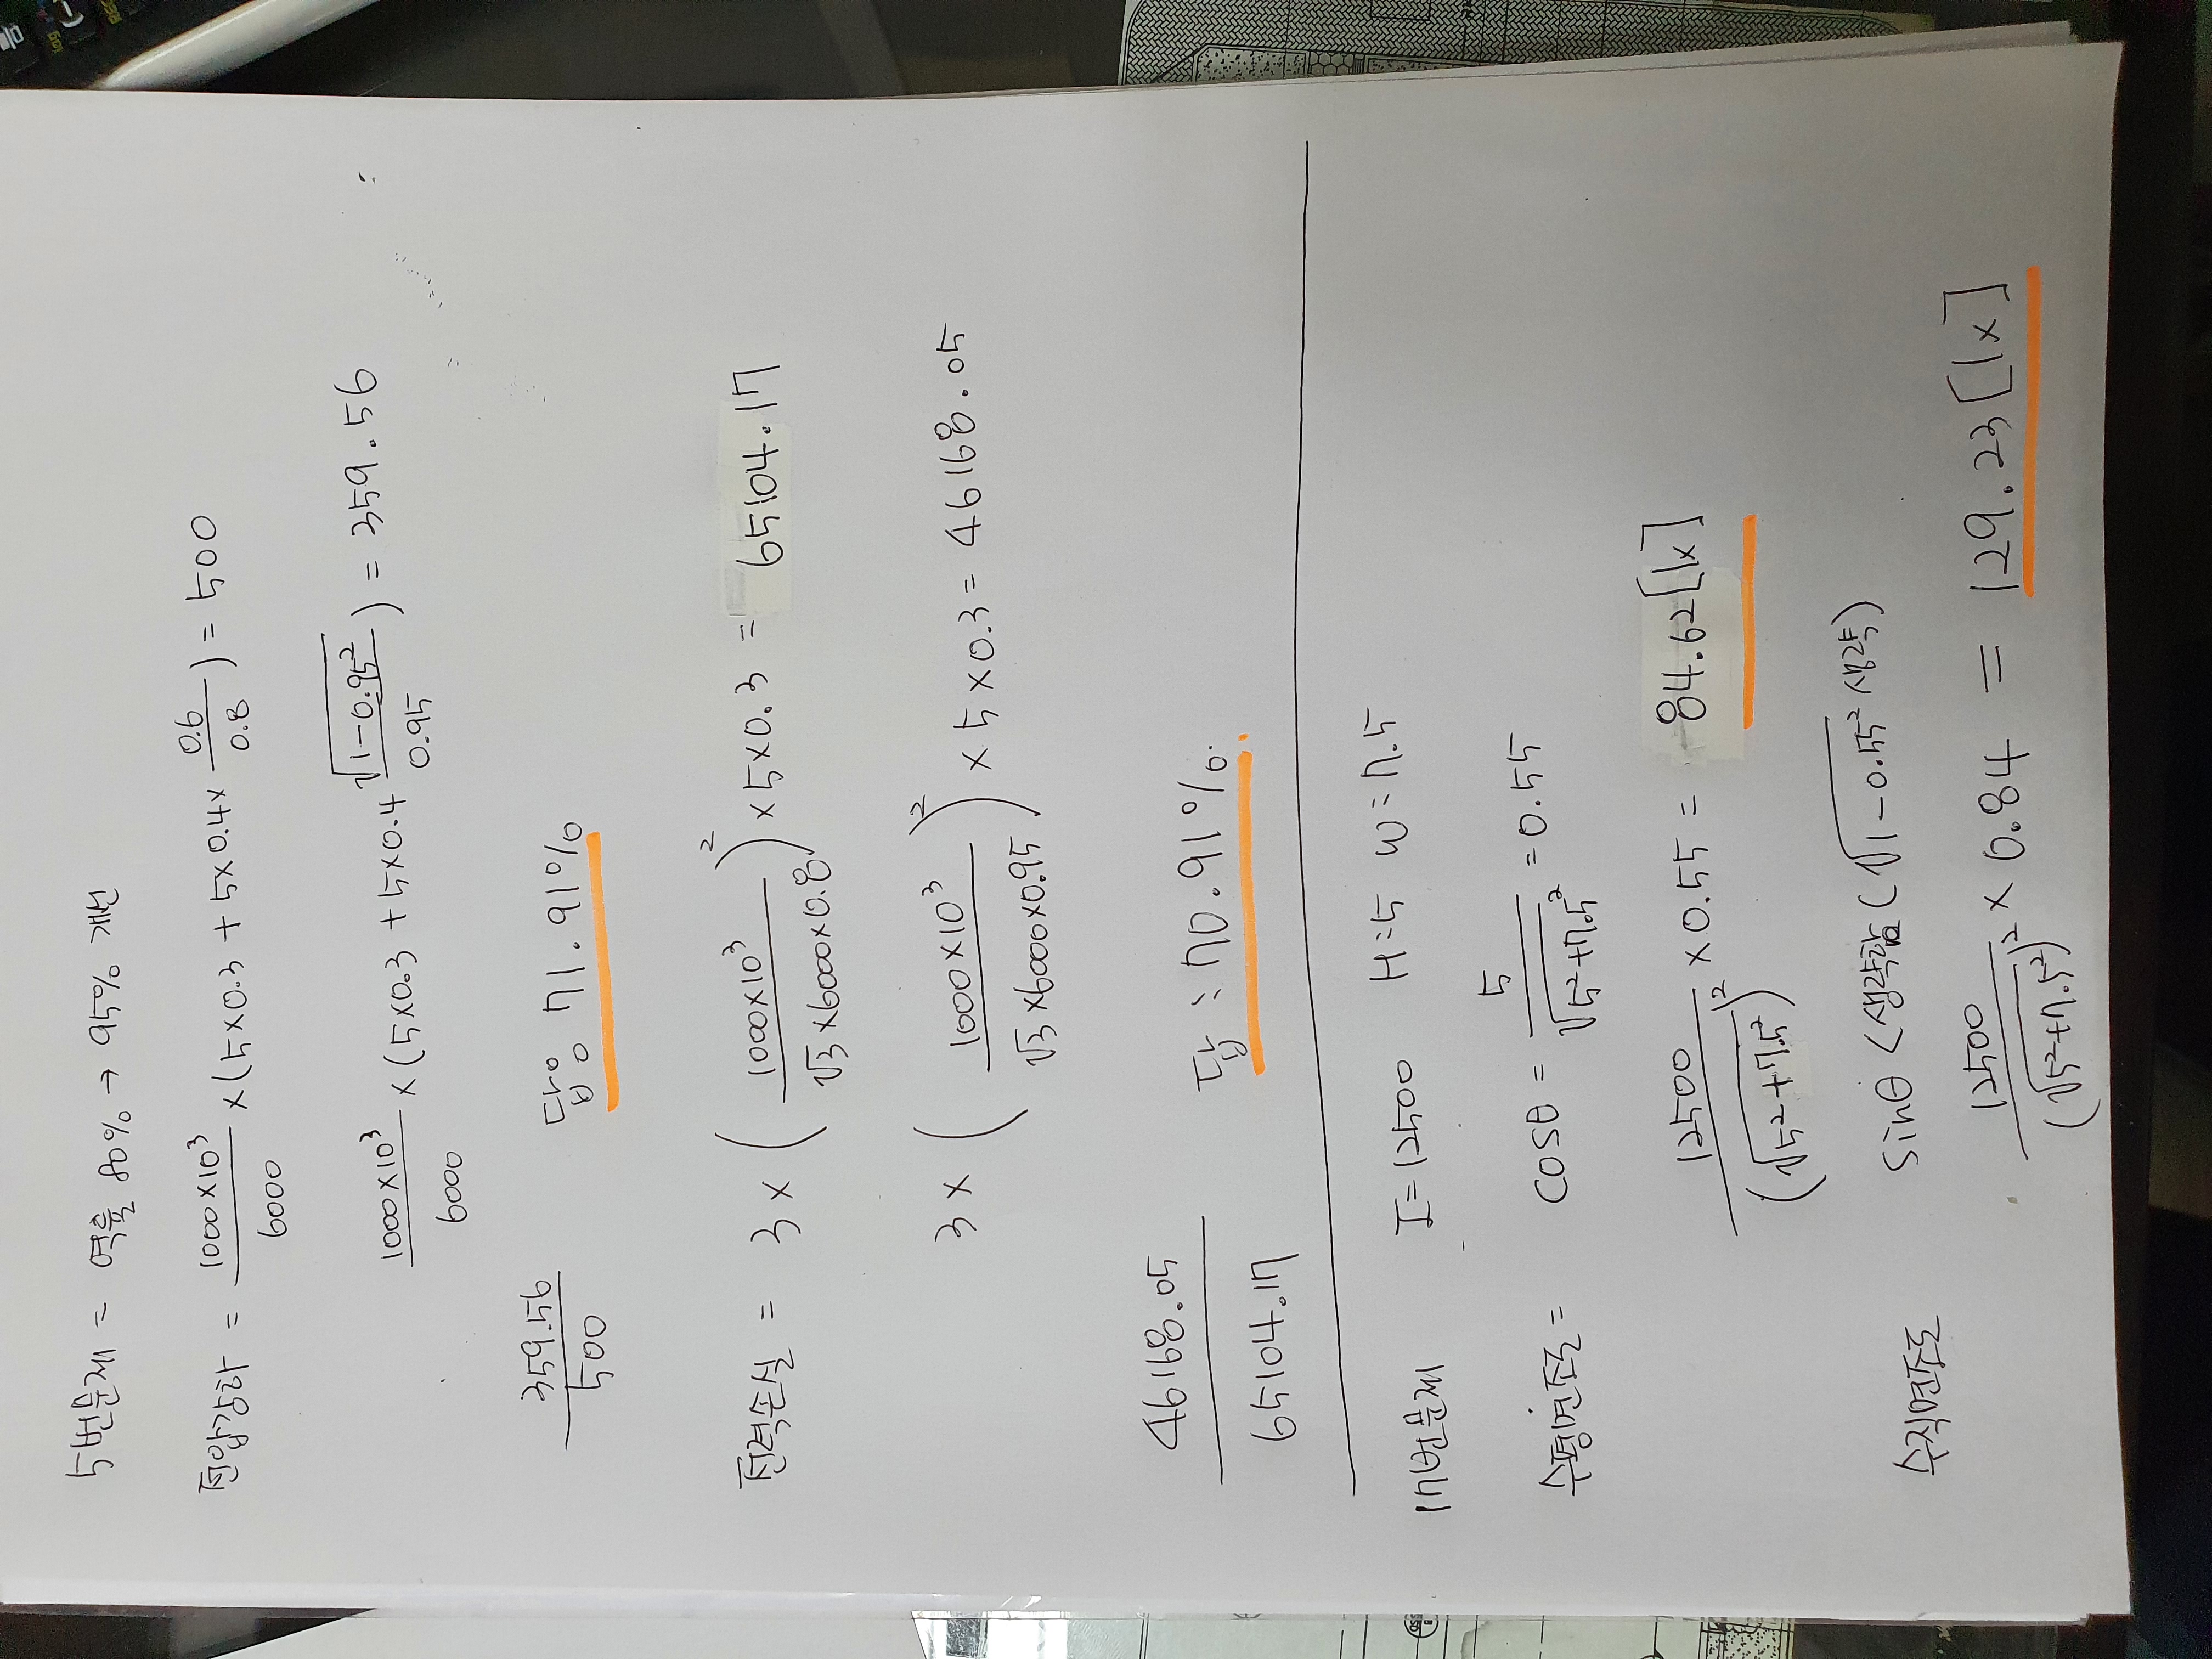 5번문제 = 역률 80% → 95% 개선
전압강하 = 1000×10³/6000 ×(5×0.3 + 5×0.4× 0.6/0.8) = 500
1000×10³/6000 ×(5×0.3 + 5×0.4 √(1-0.95²)/0.95) = 359.56
359.56/500 답: 71.91%
전력손실 = 3 × (1000×10³/√3×6000×0.8)² ×5×0.3 = 65104.17
3 × (1000×10³/√3×6000×0.95)² ×5×0.3 = 46168.05
46168.05/65104.17 답: 70.91%.
17번문제 I=12500 H=5 W=7.5
수평면조도= cosθ = 5/√(5²+7.5²) = 0.55
12500/(√(5²+7.5²))² ×0.55 = 84.62[lx]
수직면조도 sinθ <생략함 (√(1-0.55²) 생략)
12500/(√(5²+7.5²))² × 0.84 = 129.23[lx]